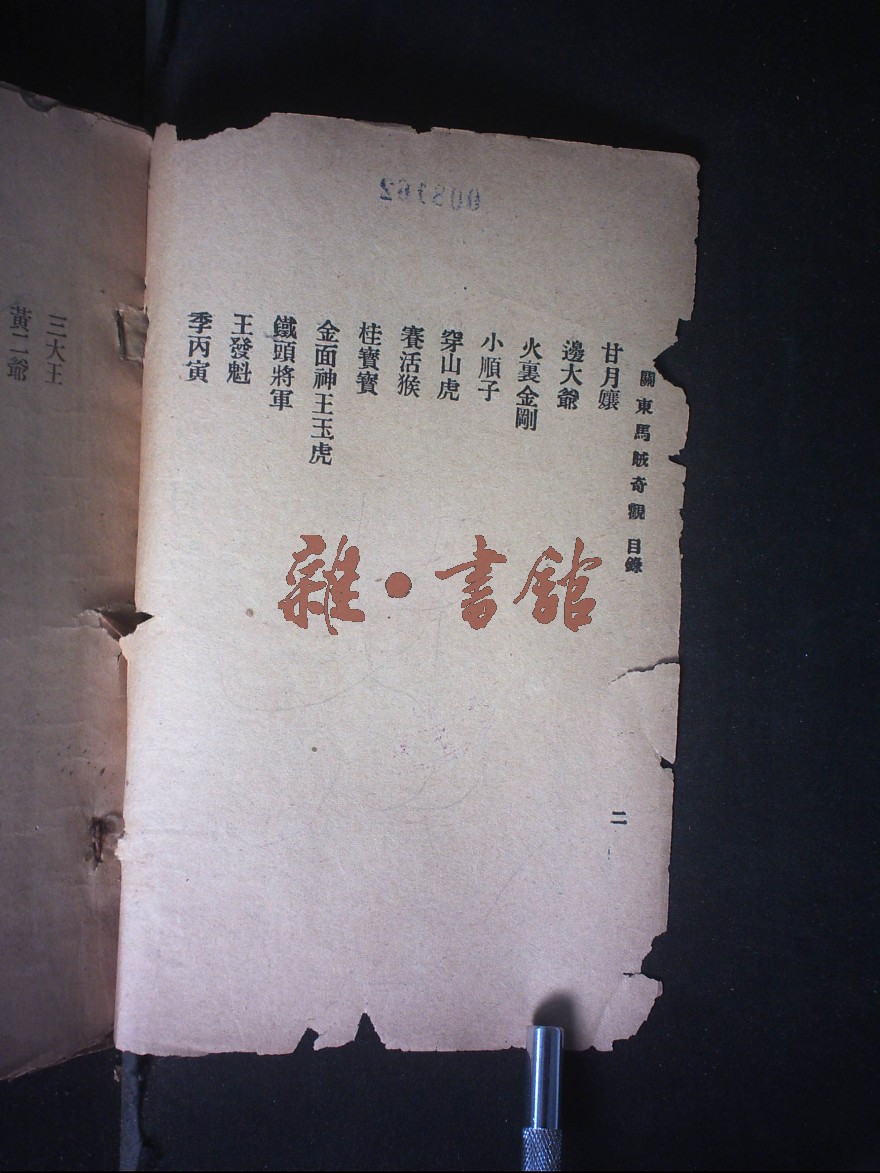 關東馬賊奇觀 目錄
二
甘月孃
邊大爺
火裏金剛
小順子
穿山虎
賽活猴
桂寶寶
金面神王玉虎
鐵頭將軍
王發魁
季丙寅
三大王
黃二爺
雜·書館